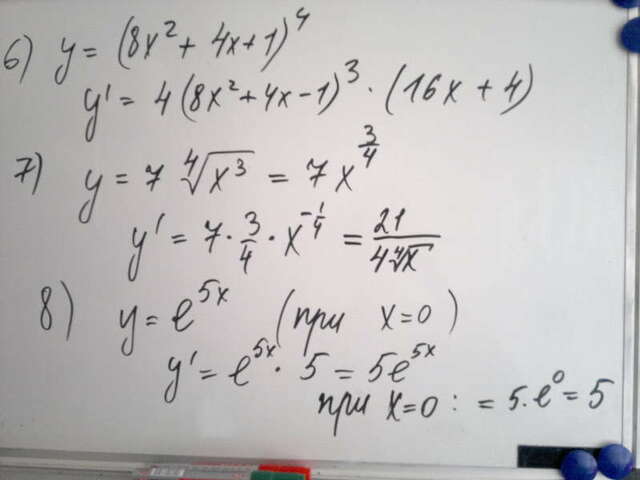 6) y = (8x² + 4x + 1)⁴
y' = 4(8x² + 4x - 1)³ · (16x + 4)
7) y = 7 ∜x³ = 7x^(3/4)
y' = 7 · 3/4 · x^(-1/4) = 21/(4∜x)
8) y = e^(5x) (при x=0)
y' = e^(5x) · 5 = 5e^(5x)
при x=0 : = 5·e⁰ = 5